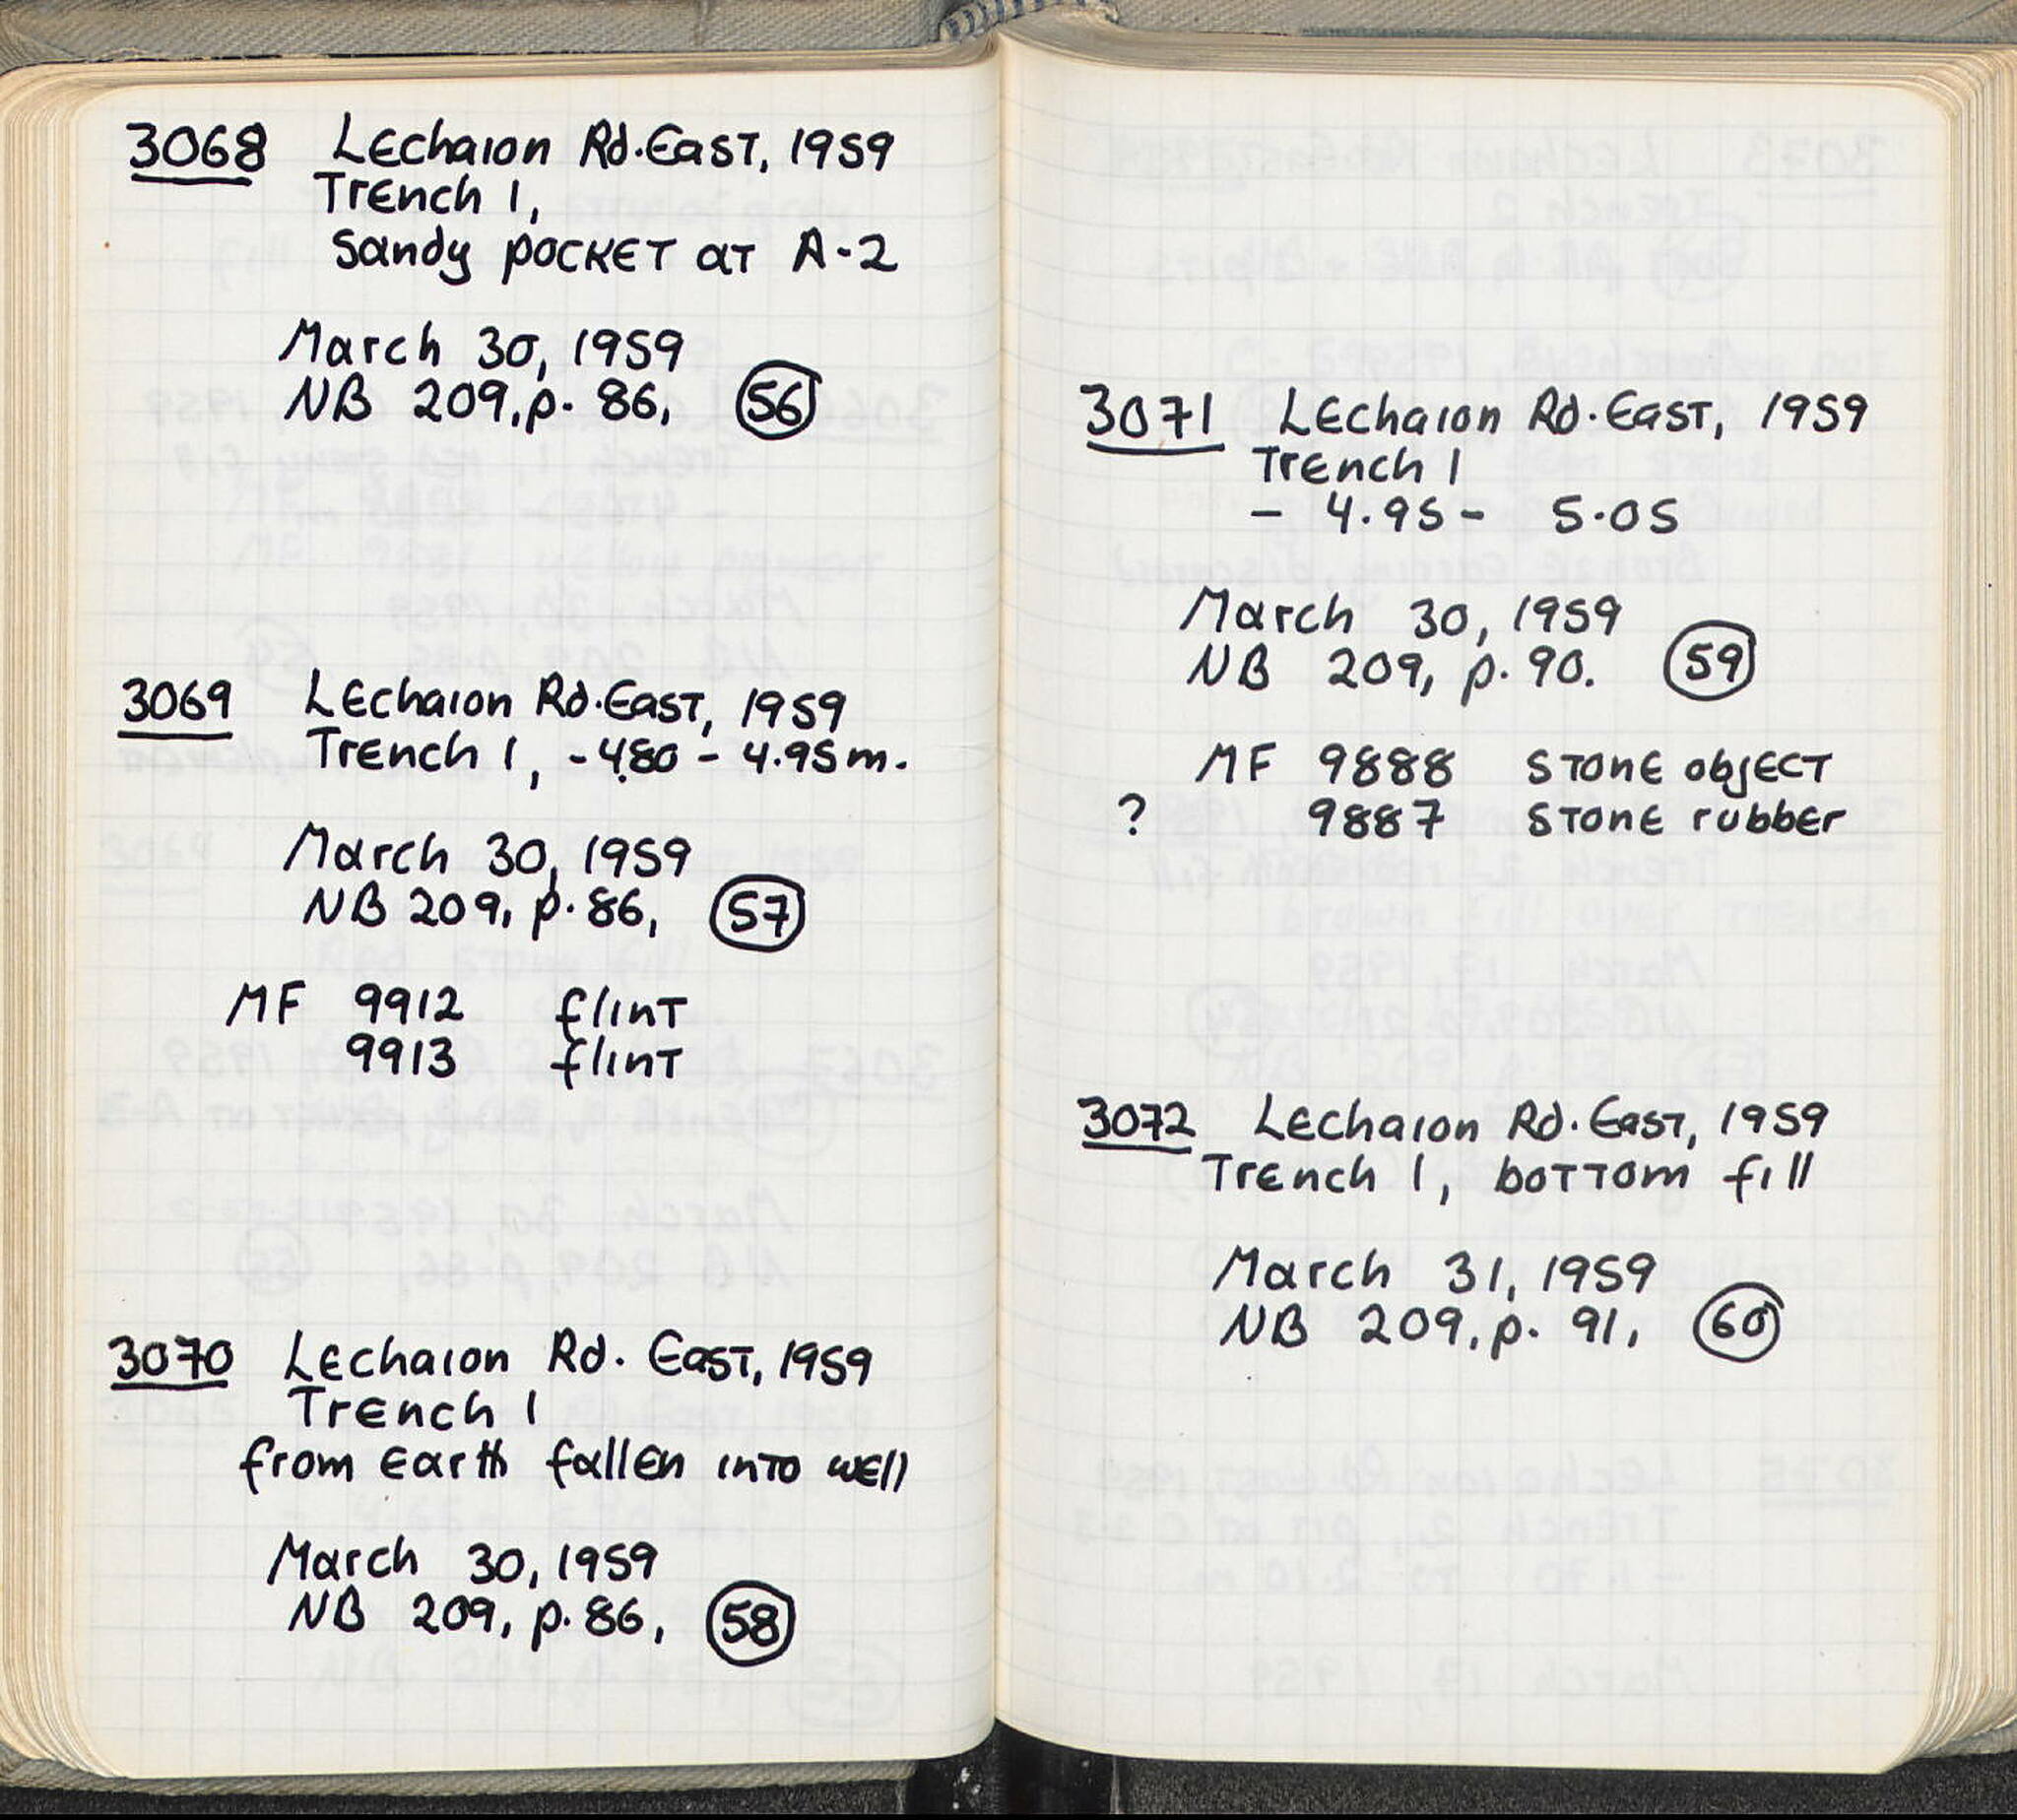 3068 Lechaion Rd. East, 1959
Trench 1,
sandy pocket at A-2
March 30, 1959
NB 209, p. 86, 56
3069 Lechaion Rd. East, 1959
Trench 1, - 4.80 - 4.95m.
March 30, 1959
NB 209, p. 86, 57
MF 9912 flint
9913 flint
3070 Lechaion Rd. East, 1959
Trench 1
from earth fallen into well
March 30, 1959
NB 209, p. 86, 58
3071 Lechaion Rd. East, 1959
Trench 1
- 4.95 - 5.05
March 30, 1959
NB 209, p. 90. 59
MF 9888 stone object
? 9887 stone rubber
3072 Lechaion Rd. East, 1959
Trench 1, bottom fill
March 31, 1959
NB 209, p. 91, 60